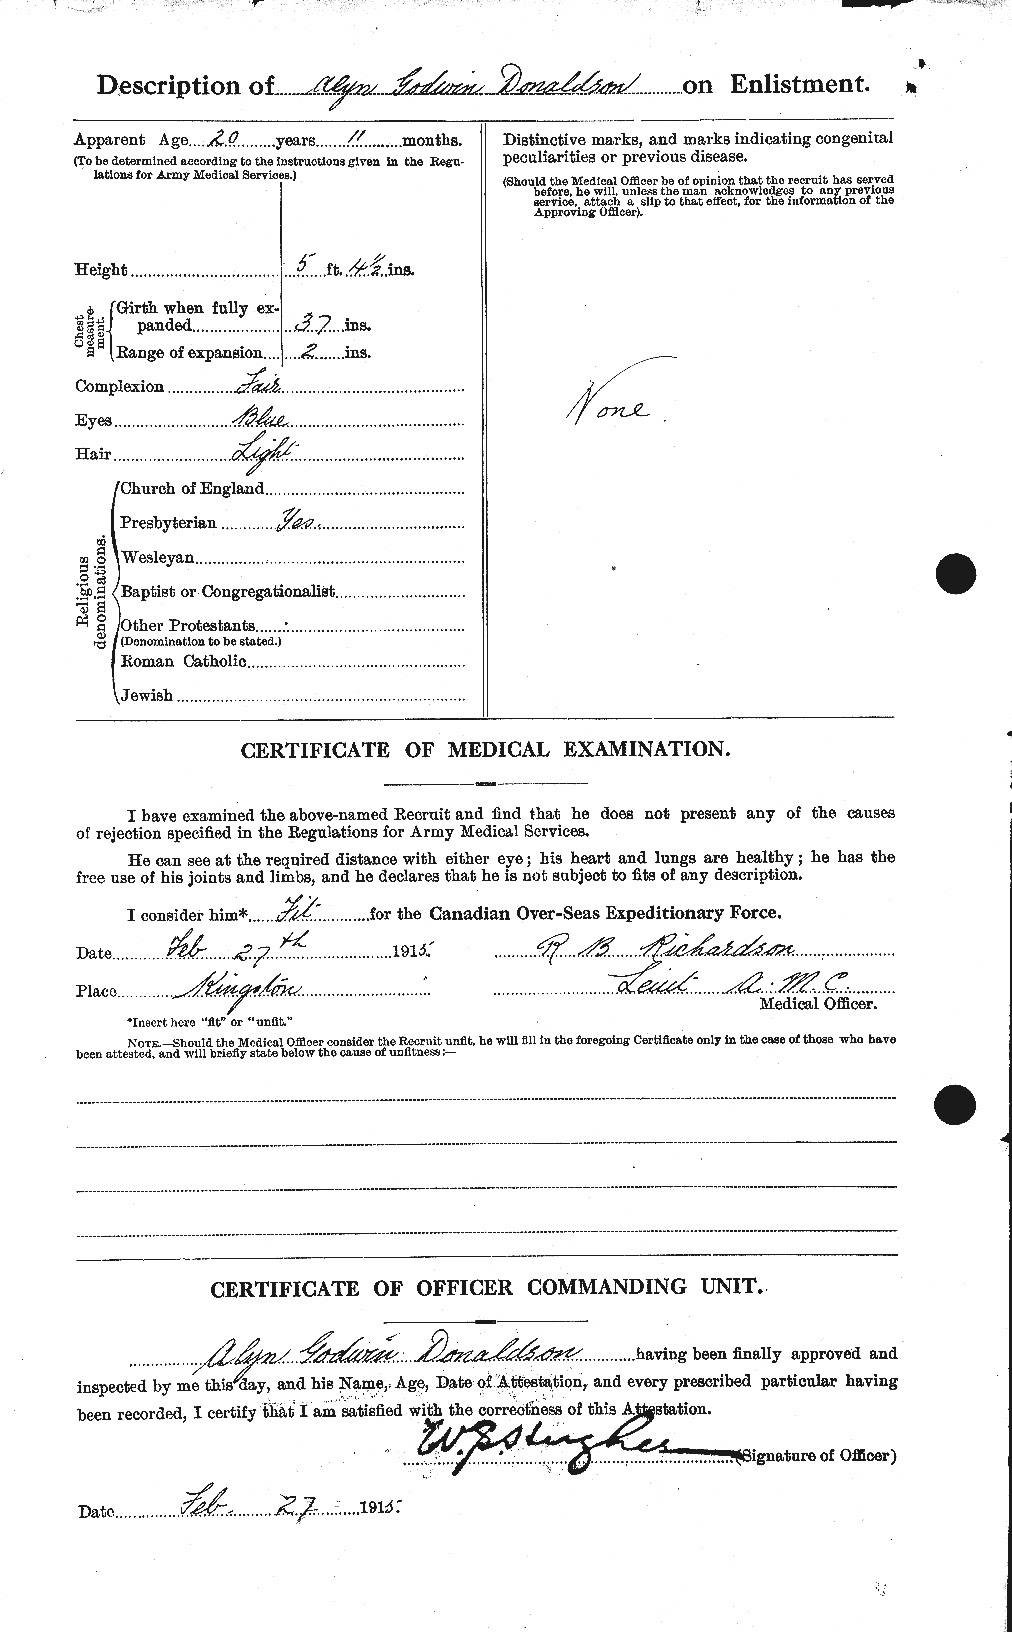 Description of Alyn Godwin Donaldson on Enlistment.
Apparent Age 20 years 11 months.
(To be determined according to the instructions given in the Regu-
lations for Army Medical Services.)
Height 5 ft. 4½ ins.
Chest measure-ment.
Girth when fully ex-
panded 37 ins.
Range of expansion 2 ins.
Complexion Fair
Eyes Blue
Hair Light
Religious denominations.
Church of England
Presbyterian Yes.
Wesleyan
Baptist or Congregationalist
Other Protestants
(Denomination to be stated.)
Roman Catholic
Jewish
Distinctive marks, and marks indicating congenital
peculiarities or previous disease.
(Should the Medical Officer be of opinion that the recruit has served
before, he will, unless the man acknowledges to any previous
service, attach a slip to that effect, for the information of the
Approving Officer).
None.
CERTIFICATE OF MEDICAL EXAMINATION.
I have examined the above-named Recruit and find that he does not present any of the causes
of rejection specified in the Regulations for Army Medical Services.
He can see at the required distance with either eye; his heart and lungs are healthy; he has the
free use of his joints and limbs, and he declares that he is not subject to fits of any description.
I consider him* Fit for the Canadian Over-Seas Expeditionary Force.
Date Feb 27th 1915 R B Richardson
Place Kingston Leiut A.M.C.
Medical Officer.
*Insert here "fit" or "unfit."
NOTE.—Should the Medical Officer consider the Recruit unfit, he will fill in the foregoing Certificate only in the case of those who have
been attested, and will briefly state below the cause of unfitness:—
CERTIFICATE OF OFFICER COMMANDING UNIT.
Alyn Godwin Donaldson having been finally approved and
inspected by me this day, and his Name, Age, Date of Attestation, and every prescribed particular having
been recorded, I certify that I am satisfied with the correctness of this Attestation.
W.S. Hughes (Signature of Officer)
Date Feb. 27 1915